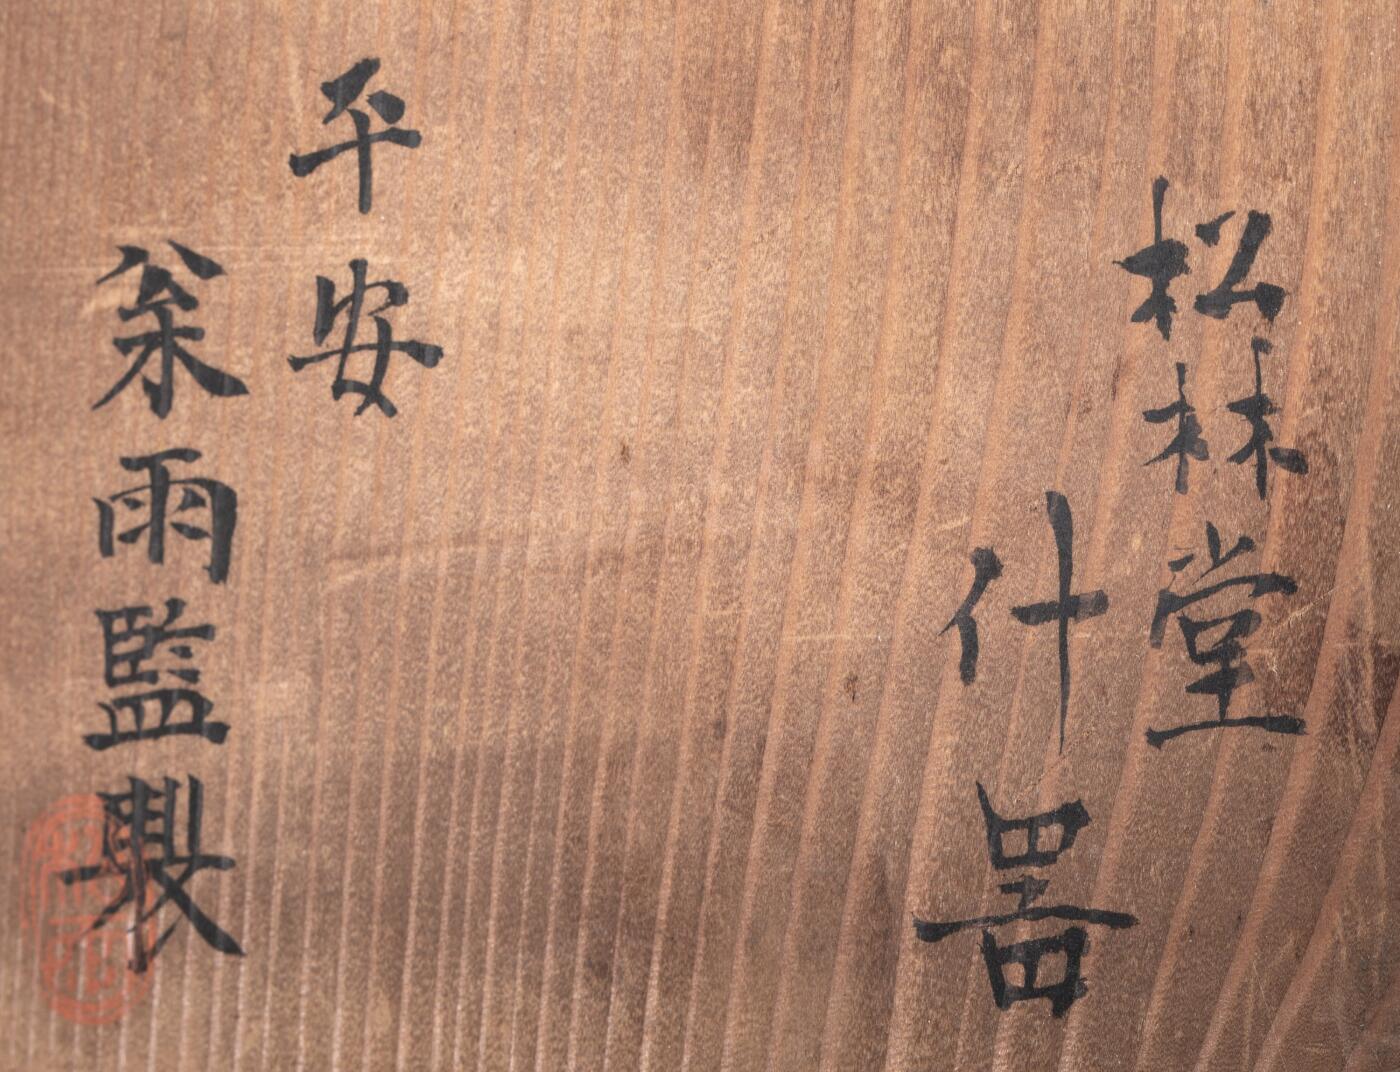 松林堂
什噐
平安
枀雨監製